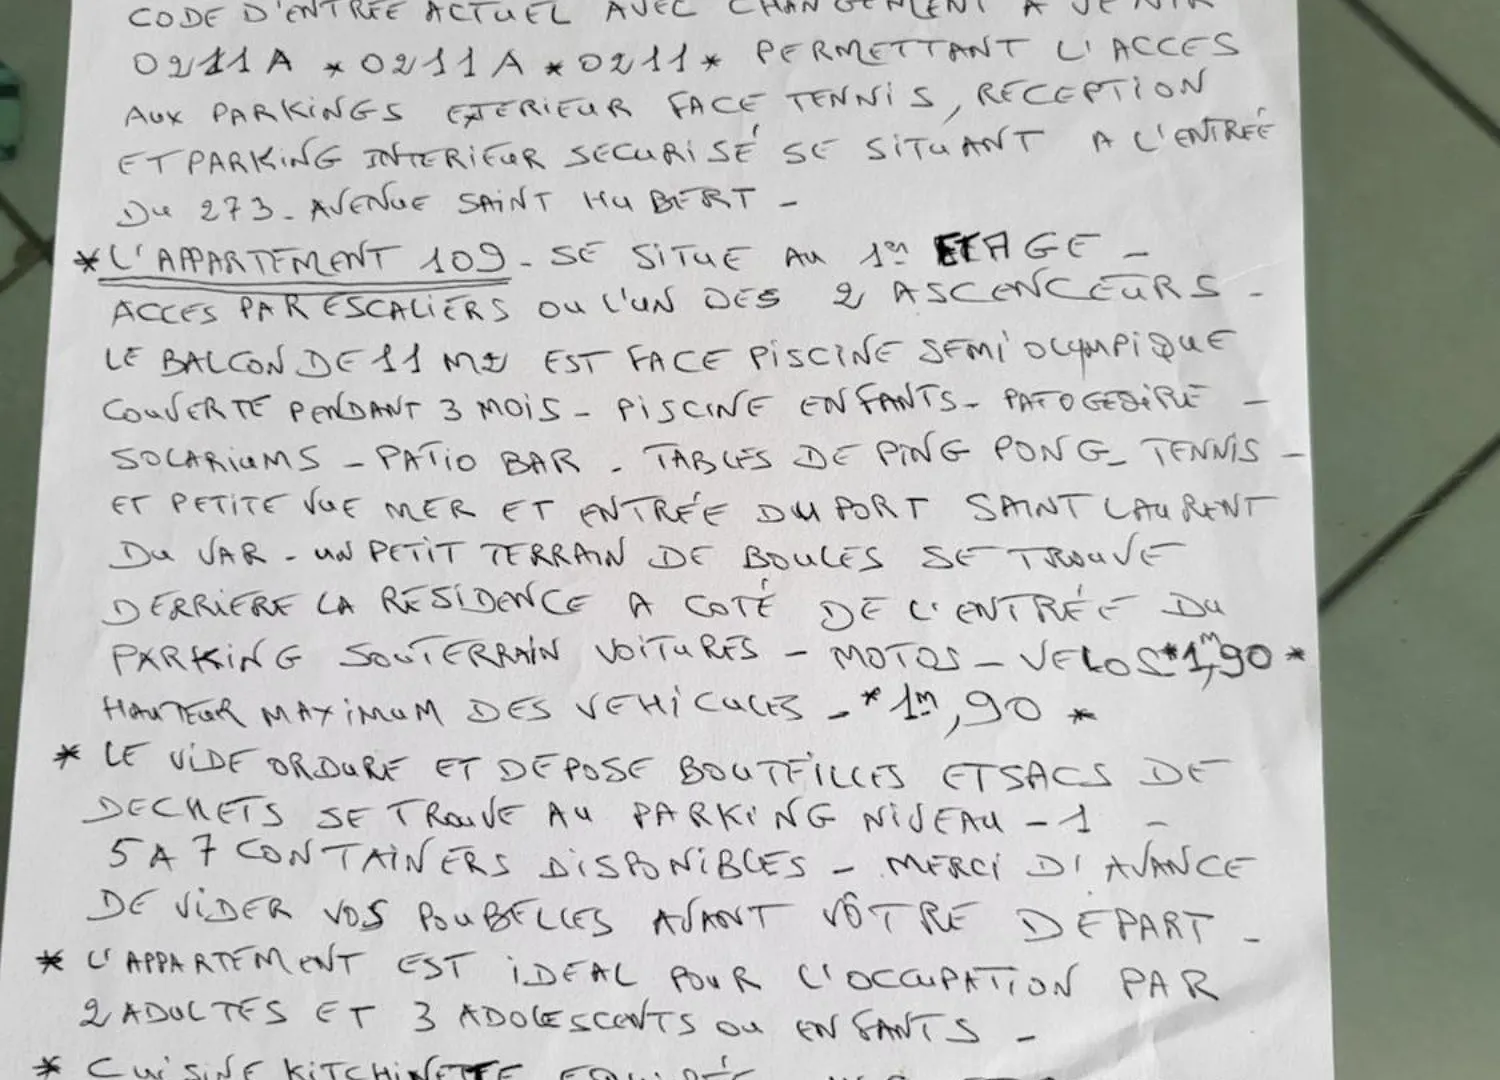 CODE D'ENTRÉE ACTUEL AVEC CHANGEMENT A VENIR
0211A * 0211A * 0211 * PERMETTANT L'ACCES
AUX PARKINGS EXTERIEUR FACE TENNIS, RECEPTION
ET PARKING INTERIEUR SECURISÉ SE SITUANT A L'ENTREÉ
DU 273 - AVENUE SAINT HUBERT -
* L'APPARTEMENT 109 - SE SITUE AU 1er ETAGE -
ACCES PAR ESCALIERS OU L'UN DES 2 ASCENCEURS -
LE BALCON DE 11 M2 EST FACE PISCINE SEMI OLYMPIQUE
COUVERTE PENDANT 3 MOIS - PISCINE ENFANTS -
SOLARIUMS - PATIO BAR - TABLES DE PING PONG - TENNIS -
ET PETITE VUE MER ET ENTRÉE DU PORT SAINT LAURENT
DU VAR - UN PETIT TERRAIN DE BOULES SE TROUVE
DERRIERE LA RESIDENCE A COTÉ DE L'ENTRÉE DU
PARKING SOUTERRAIN VOITURES - MOTOS - VELOS *1m,90 *
HAUTEUR MAXIMUM DES VEHICULES - * 1m,90 *
* LE VIDE ORDURE ET DEPOSE BOUTEILLES ET SACS DE
DECHETS SE TROUVE AU PARKING NIVEAU -1 -
5 A 7 CONTAINERS DISPONIBLES - MERCI D'AVANCE
DE VIDER VOS POUBELLES AVANT VÔTRE DEPART -
* L'APPARTEMENT EST IDEAL POUR L'OCCUPATION PAR
2 ADULTES ET 3 ADOLESCENTS OU ENFANTS -
* CUISINE KITCHINETTE EQUIPÉE